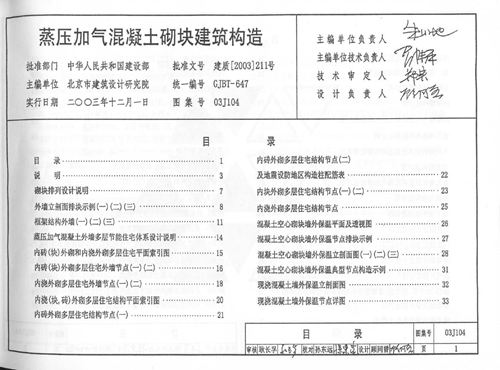 蒸压加气混凝土砌块建筑构造
批准部门 中华人民共和国建设部 批准文号 建质[2003]211号
主编单位 北京市建筑设计研究院 统一编号 GJBT-647
实行日期 二〇〇三年十二月一日 图集号 03J104
主编单位负责人
主编单位技术负责人
技术审定人
设计负责人
目 录
目录 1
说明 3
砌块排列设计说明 7
外墙立剖面排块示例(一)(二)(三) 8
框架结构外墙(一)(二)(三) 11
蒸压加气混凝土外墙多层节能住宅体系设计说明 14
内砖(块)外砌和内浇外砌多层住宅平面索引图 15
内砖(块)外砌多层住宅外墙节点(一)(二) 16
内浇外砌多层住宅外墙节点(一)(二) 18
内浇(块,砖)外砌多层住宅结构平面索引图 20
内砖外砌多层住宅结构节点(一) 21
目 录
内砖外砌多层住宅结构节点(二)
及地震设防地区构造柱配筋表 22
内块外砌多层住宅结构节点(一)(二) 23
内浇外砌多层住宅结构节点 25
混凝土空心砌块墙外保温平面及透视图 26
混凝土空心砌块墙外保温节点排块示例 27
混凝土空心砌块墙外保温立剖面图(一)(二)(三) 28
混凝土空心砌块墙外保温典型节点构造示例 31
现浇混凝土墙外保温立剖面图 32
现浇混凝土墙外保温节点详图 33
目 录 图集号 03J104
审核 耿长孚 校对 孙东远 设计 顾同曾 页 1